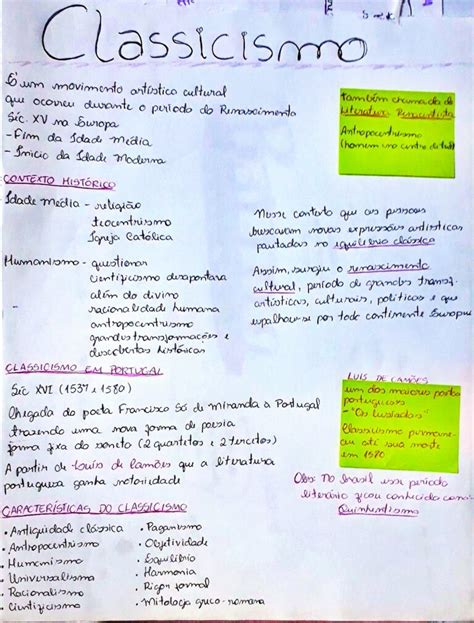 Classicismo
É um movimento artístico cultural
que ocorreu durante o período do Renascimento
Séc. XV na Europa
- Fim da Idade Média
- Início da Idade Moderna
também chamada de
Literatura Renascentista
Antropocentrismo
(homem no centro de tudo)
CONTEXTO HISTÓRICO
Idade Média - religião
teocentrismo
Igreja Católica
Humanismo - questionar
cientificismo despontara
além do divino
racionalidade humana
antropocentrismo
grandes transformações e
descobertas históricas
Nesse contexto que as pessoas
buscavam novas expressões artísticas
pautadas no equilíbrio clássico
Assim, surgiu o renascimento
cultural, período de grandes transf.
artísticas, culturais, políticas e que
espalhou-se por todo continente Europeu
CLASSICISMO EM PORTUGAL
Séc XVI (1537 e 1580)
Chegada do poeta Francisco Sá de Miranda à Portugal
trazendo uma nova forma de poesia
forma fixa do soneto (2 quartetos e 2 tercetos)
A partir de Louis de Camões que a literatura
portuguesa ganha notoriedade
LUÍS DE CAMÕES
um dos maiores poetas
portugueses
- "Os Lusíadas"
Classicismo permane-
ceu até sua morte
em 1580
Obs: No Brasil esse período
literário ficou conhecido como
Quinhentismo
CARACTERÍSTICAS DO CLASSICISMO
• Antiguidade clássica
• Antropocentrismo
• Humanismo
• Universalismo
• Racionalismo
• Cientificismo
• Paganismo
• Objetividade
• Equilíbrio
• Harmonia
• Rigor formal
• Mitologia greco-romana